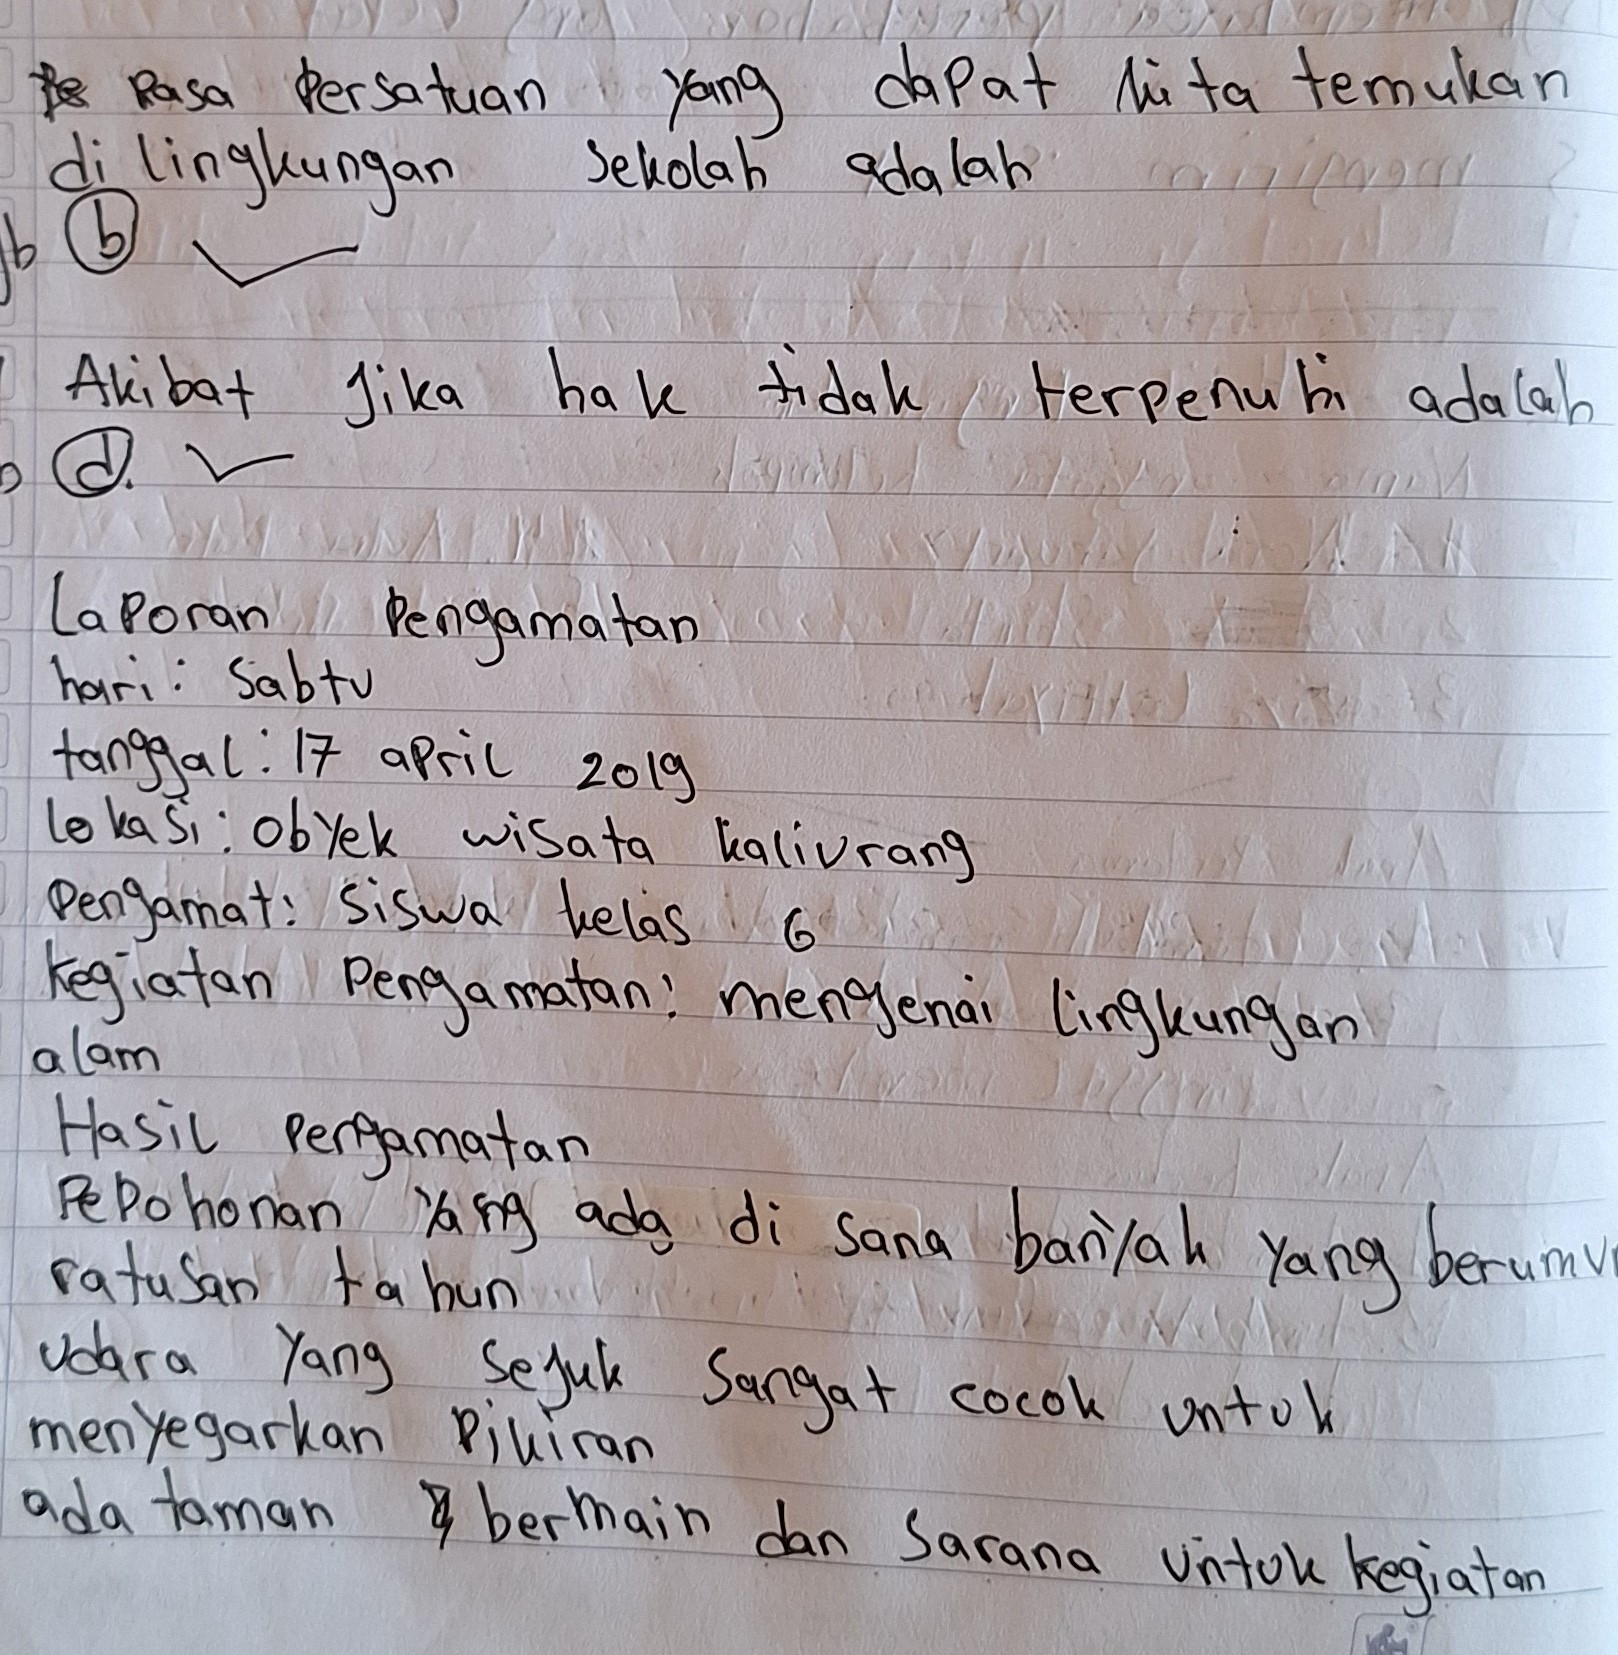 Rasa Persatuan yang dapat kita temukan
di lingkungan sekolah adalah
jb b
Akibat jika hak tidak terpenuhi adalah
d.
Laporan Pengamatan
hari: Sabtu
tanggal: 17 april 2019
lokasi: obyek wisata kaliurang
Pengamat: Siswa kelas 6
kegiatan Pengamatan: mengenai lingkungan
alam
Hasil Pengamatan
Pepohonan yang ada di sana banyak yang berumur
ratusan tahun
udara yang sejuk sangat cocok untuk
menyegarkan pikiran
ada taman bermain dan sarana untuk kegiatan